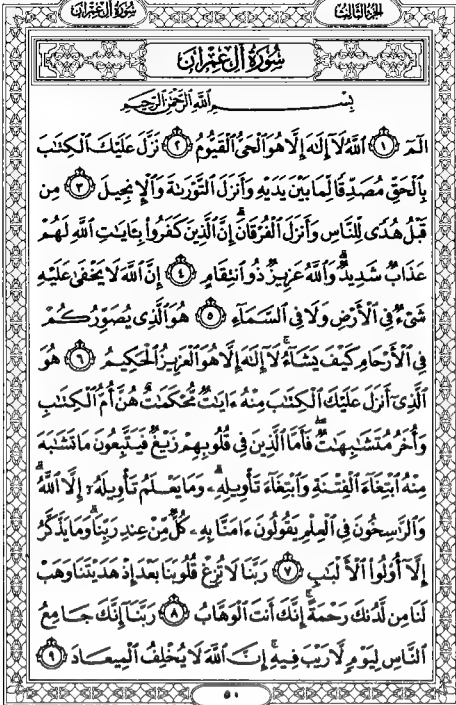 سُورَةُ آلِ عِمْرَانَ
الجزء الثالث
سُورَةُ آلِ عِمْرَانَ
بِسْمِ اللَّهِ الرَّحْمَٰنِ الرَّحِيمِ
الٓمٓ ١ ٱللَّهُ لَآ إِلَٰهَ إِلَّا هُوَ ٱلْحَىُّ ٱلْقَيُّومُ ٢ نَزَّلَ عَلَيْكَ ٱلْكِتَٰبَ
بِٱلْحَقِّ مُصَدِّقًا لِّمَا بَيْنَ يَدَيْهِ وَأَنزَلَ ٱلتَّوْرَىٰةَ وَٱلْإِنجِيلَ ٣ مِن
قَبْلُ هُدًى لِّلنَّاسِ وَأَنزَلَ ٱلْفُرْقَانَ ۗ إِنَّ ٱلَّذِينَ كَفَرُوا۟ بِـَٔايَٰتِ ٱللَّهِ لَهُمْ
عَذَابٌ شَدِيدٌ ۗ وَٱللَّهُ عَزِيزٌ ذُو ٱنتِقَامٍ ٤ إِنَّ ٱللَّهَ لَا يَخْفَىٰ عَلَيْهِ
شَىْءٌ فِى ٱلْأَرْضِ وَلَا فِى ٱلسَّمَآءِ ٥ هُوَ ٱلَّذِى يُصَوِّرُكُمْ
فِى ٱلْأَرْحَامِ كَيْفَ يَشَآءُ ۚ لَآ إِلَٰهَ إِلَّا هُوَ ٱلْعَزِيزُ ٱلْحَكِيمُ ٦ هُوَ
ٱلَّذِىٓ أَنزَلَ عَلَيْكَ ٱلْكِتَٰبَ مِنْهُ ءَايَٰتٌ مُّحْكَمَٰتٌ هُنَّ أُمُّ ٱلْكِتَٰبِ
وَأُخَرُ مُتَشَٰبِهَٰتٌ ۖ فَأَمَّا ٱلَّذِينَ فِى قُلُوبِهِمْ زَيْغٌ فَيَتَّبِعُونَ مَا تَشَٰبَهَ
مِنْهُ ٱبْتِغَآءَ ٱلْفِتْنَةِ وَٱبْتِغَآءَ تَأْوِيلِهِۦ ۗ وَمَا يَعْلَمُ تَأْوِيلَهُۥٓ إِلَّا ٱللَّهُ ۗ
وَٱلرَّٰسِخُونَ فِى ٱلْعِلْمِ يَقُولُونَ ءَامَنَّا بِهِۦ كُلٌّ مِّنْ عِندِ رَبِّنَا ۗ وَمَا يَذَّكَّرُ
إِلَّآ أُو۟لُوا۟ ٱلْأَلْبَٰبِ ٧ رَبَّنَا لَا تُزِغْ قُلُوبَنَا بَعْدَ إِذْ هَدَيْتَنَا وَهَبْ
لَنَا مِن لَّدُنكَ رَحْمَةً ۚ إِنَّكَ أَنتَ ٱلْوَهَّابُ ٨ رَبَّنَآ إِنَّكَ جَامِعُ
ٱلنَّاسِ لِيَوْمٍ لَّا رَيْبَ فِيهِ ۚ إِنَّ ٱللَّهَ لَا يُخْلِفُ ٱلْمِيعَادَ ٩
٥٠